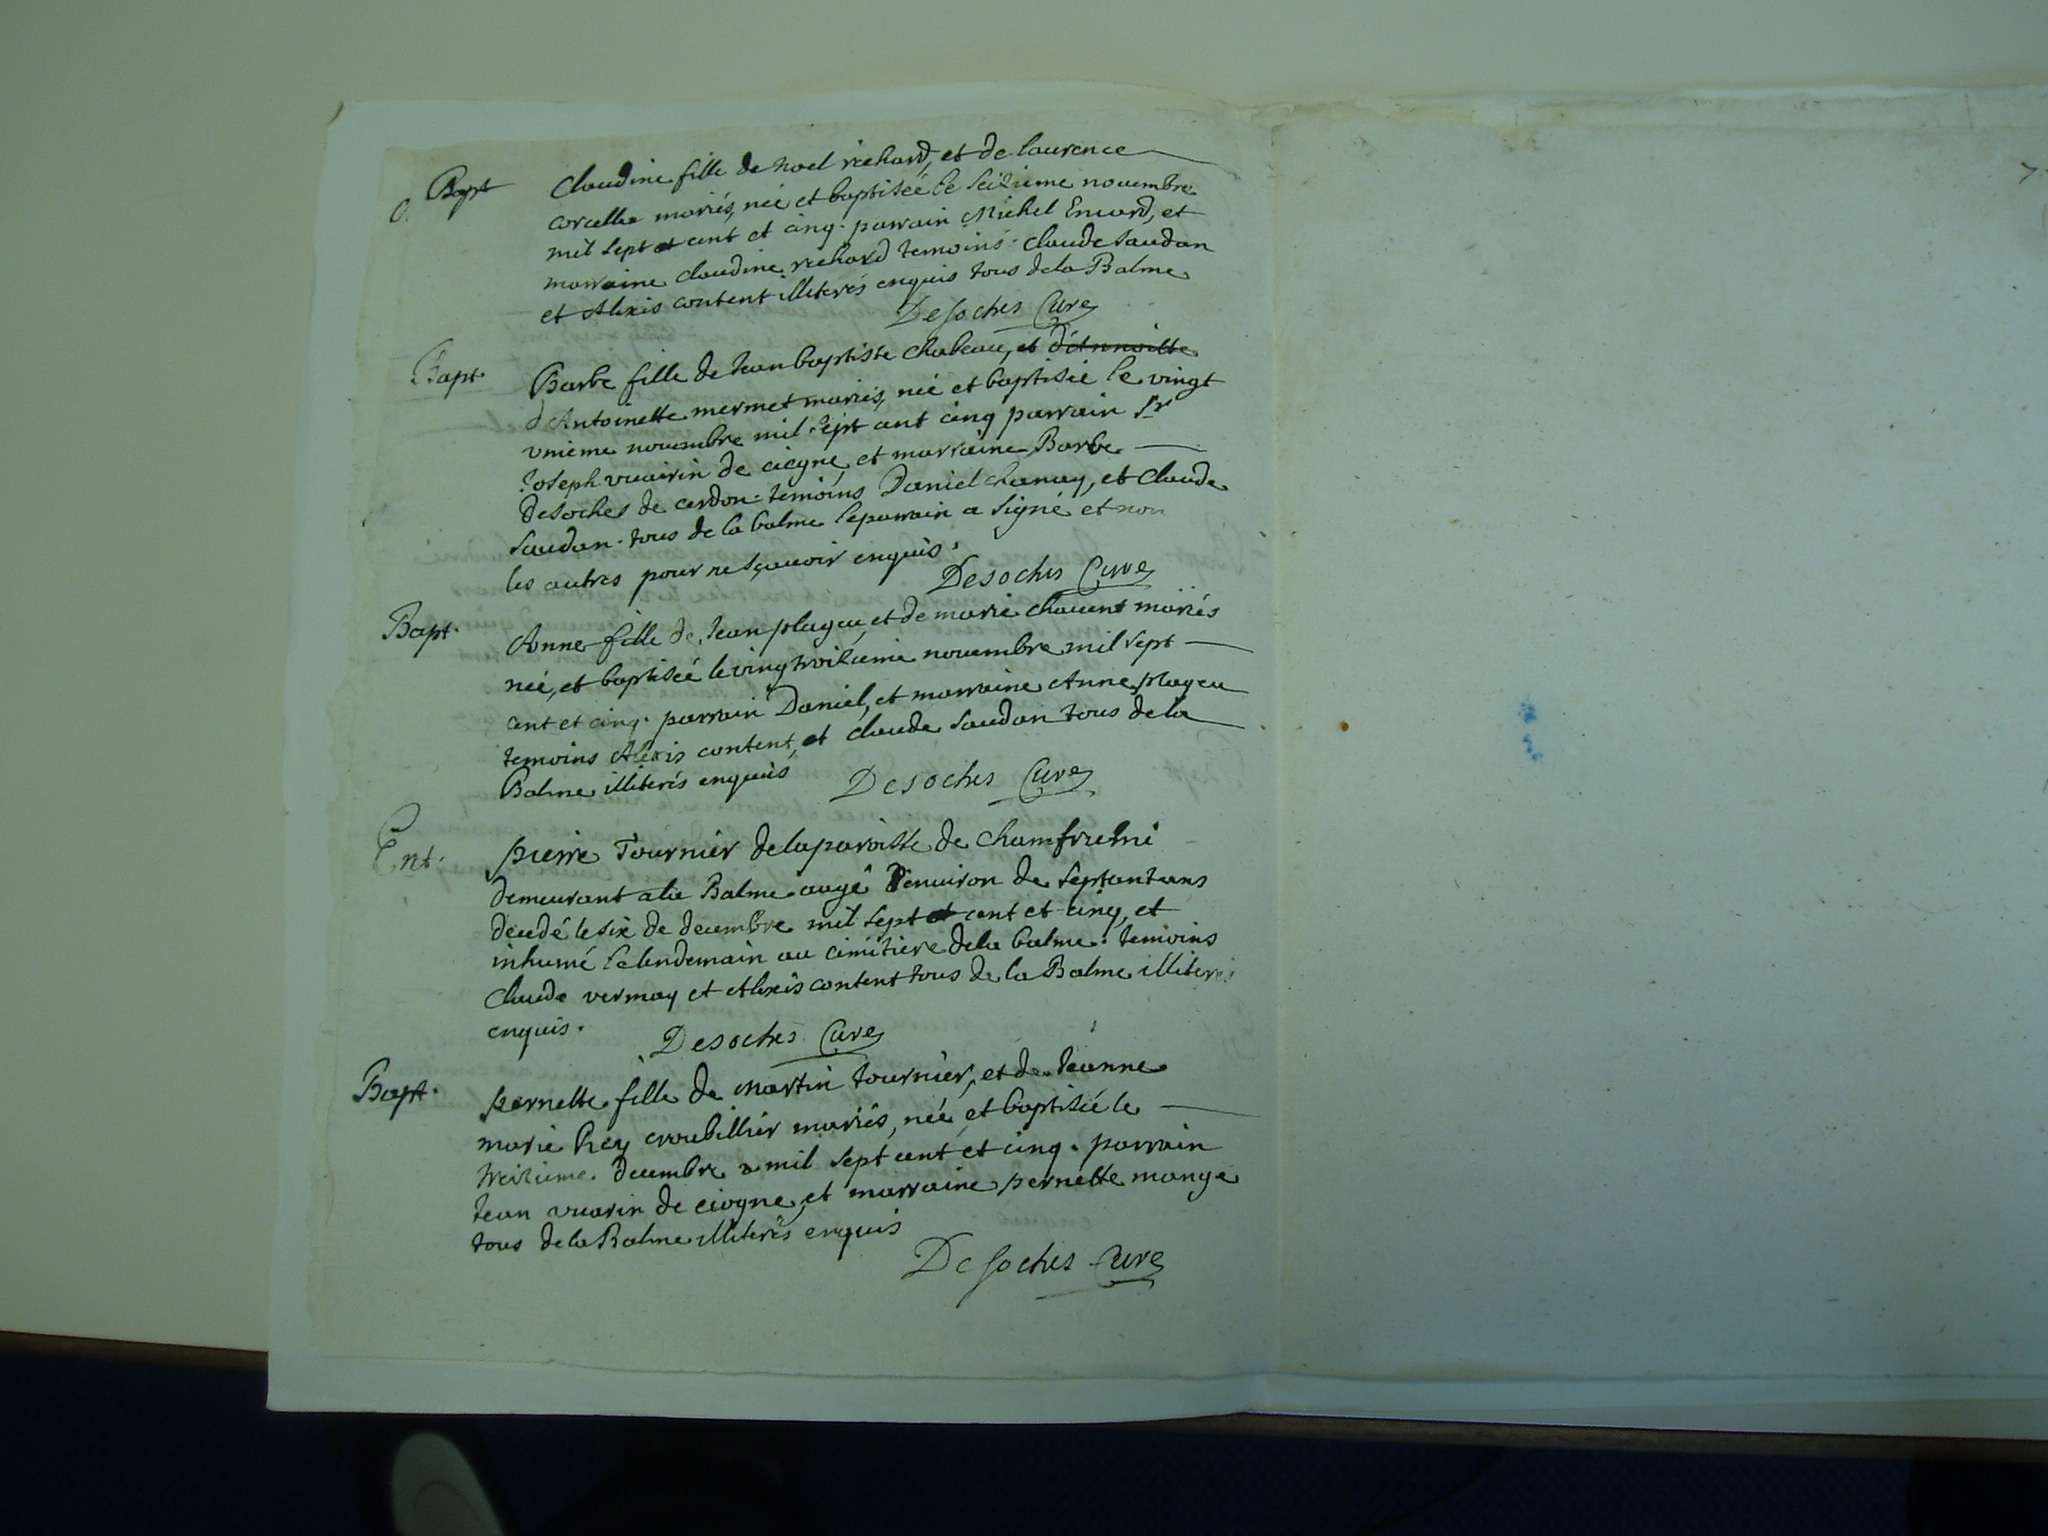 Bapt Claudine fille de noel richard, et de laurence
corcelle mariés, née et baptisée le seizieme novembre
mil sept cent et cinq. parrain Michel Emard, et
marraine claudine richard temoins. claude saudan
et Alexis content illiterés enquis tous de la Balme
DeSoches Curé
Bapt. Barbe fille de Jean baptiste chabeau, et
d'Antoinette mermet mariés, née et baptisée le vingt
unieme novembre mil sept cent cinq parrain Sr
Joseph vuairin de ciogne, et marraine Barbe
desoches de cerdon. temoins Daniel chanay, et Claude
saudan. tous de la balme le parrain a signé et non
les autres pour ne sçavoir enquis.
Desoches Curé
Bapt. Anne fille de Jean plagea et de marie chavent mariés
née, et baptisée le vingtroisieme novembre mil sept
cent et cinq. parrain Daniel, et marraine Anne plagea
temoins Alexis content, et claude saudan tous de la
Balme illiterés enquis
Desoches Curé
Ent. pierre Tournier de la paroisse de chamfrumi
demeurant a la Balme aagé d'environ de septantans
decedé le six de decembre mil sept cent et cinq, et
inhumé le lendemain au cimitiere de la balme. temoins
Claude vermay et Alexis content tous de la Balme illiterés
enquis.
Desoches Curé
Bapt. pernette fille de Martin tournier, et de Jeanne
marie Rey croubillier mariés, née, et baptisée le
treizieme. decembre mil sept cent et cinq. parrain
Jean vuarin de ciogne, et marraine pernette monge
tous de la Balme illiterés enquis
DeSoches Curé